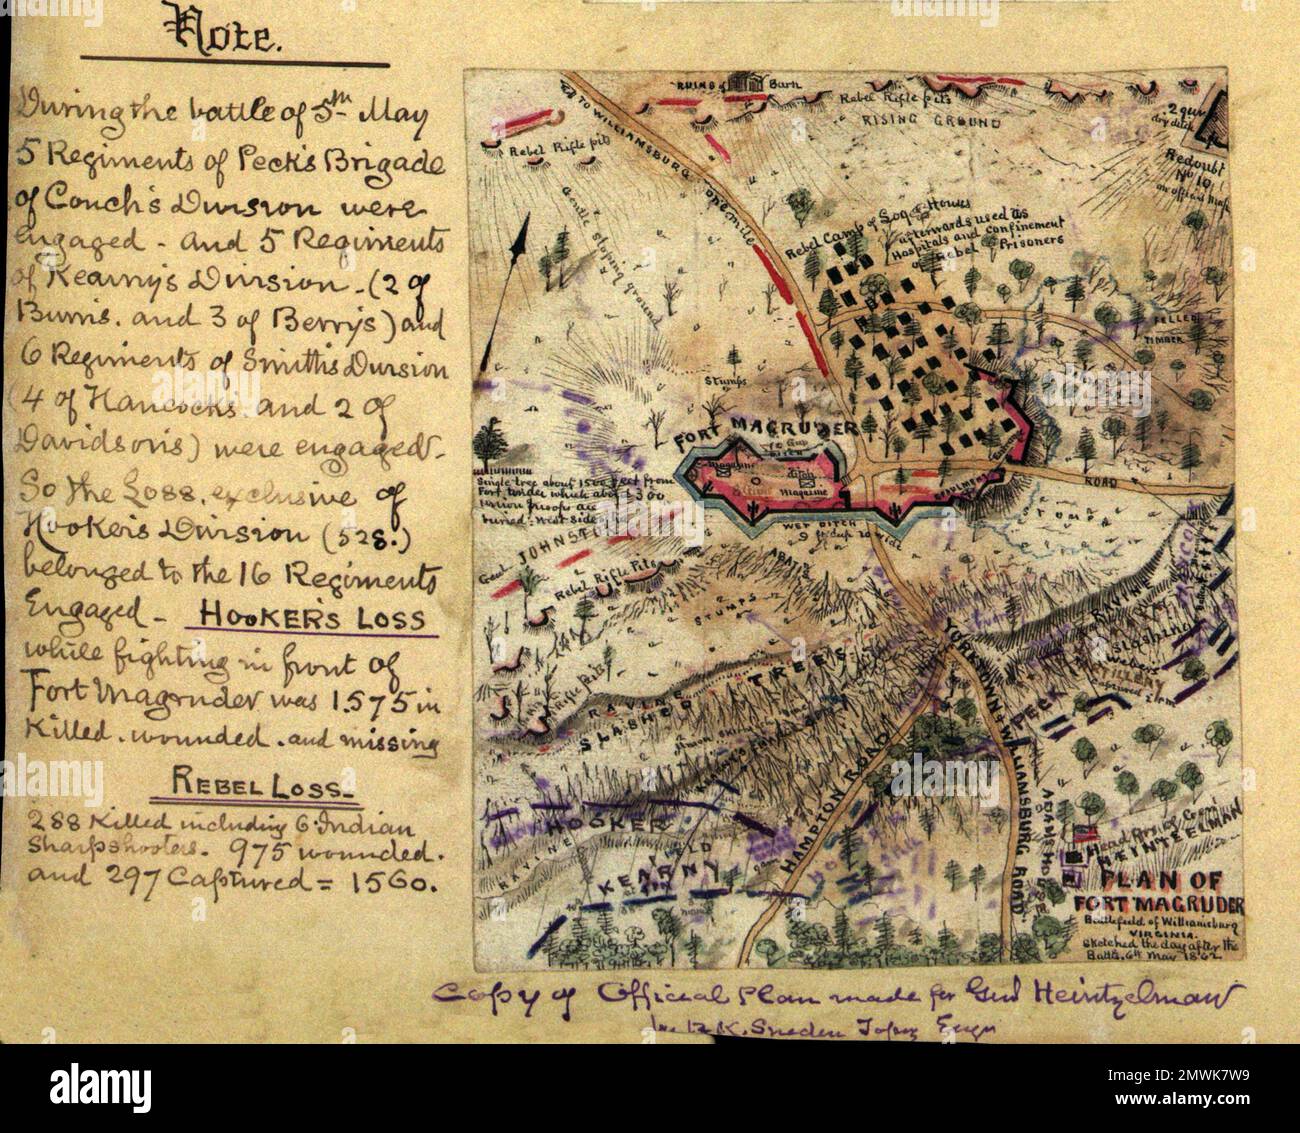 Note.
During the battle of 5th May
5 Regiments of Peck's Brigade
of Couch's Division were
engaged - and 5 Regiments
of Kearny's Division - (2 of
Burris. and 3 of Berry's) and
6 Regiments of Smith's Division
(4 of Hancocks and 2 of
Davidson's) were engaged -
So the Loss. exclusive of
Hooker's Division (528.)
belonged to the 16 Regiments
Engaged - HOOKER'S LOSS
while fighting in front of
Fort Magruder was 1.575 in
Killed. wounded. and missing
REBEL LOSS -
288 Killed including 6 Indian
Sharpshooters. 975 wounded.
and 297 Captured = 1560.
RUINS Barn
Rebel Rifle pits
RISING GROUND
TO WILLIAMSBURG ONE mile
Rebel Rifle pits
2 gun
dry ditch
Redoubt
No 10
on official map
Gentle sloping ground
Rebel Camp of Log Houses
afterwards used as
Hospitals and confinement
of Rebel Prisoners
FELLED
TIMBER
Stumps
FORT MAGRUDER
Magazine
Magazine
ROAD
Single tree about 1500 feet from
Fort, under which abt 1300
buried. West side
WET DITCH
9 ft deep 20 wide
STUMPS
Genl JOHNSTON
Rebel Rifle Pits
ABATIS
STUMPS
Rifle pits
RAVINE
RAVINE
SLASHED TREES
Slashing
Webers
YORKTOWN & WILLIAMSBURG ROAD
PECK
HAMPTON ROAD
HOOKER
RAVINE
KEARNY
ADAMS HOUSE
Head Qrs
HEINTELMAN
PLAN OF
FORT MAGRUDER
Battlefield of Williamsburg
VIRGINIA.
Sketched the day after the
Battle, 6th May 1862
Copy of Official Plan made for Genl Heintzelman
by R. K. Sneden Topog Engr
alamy
Image ID: 2MWK7W9
www.alamy.com